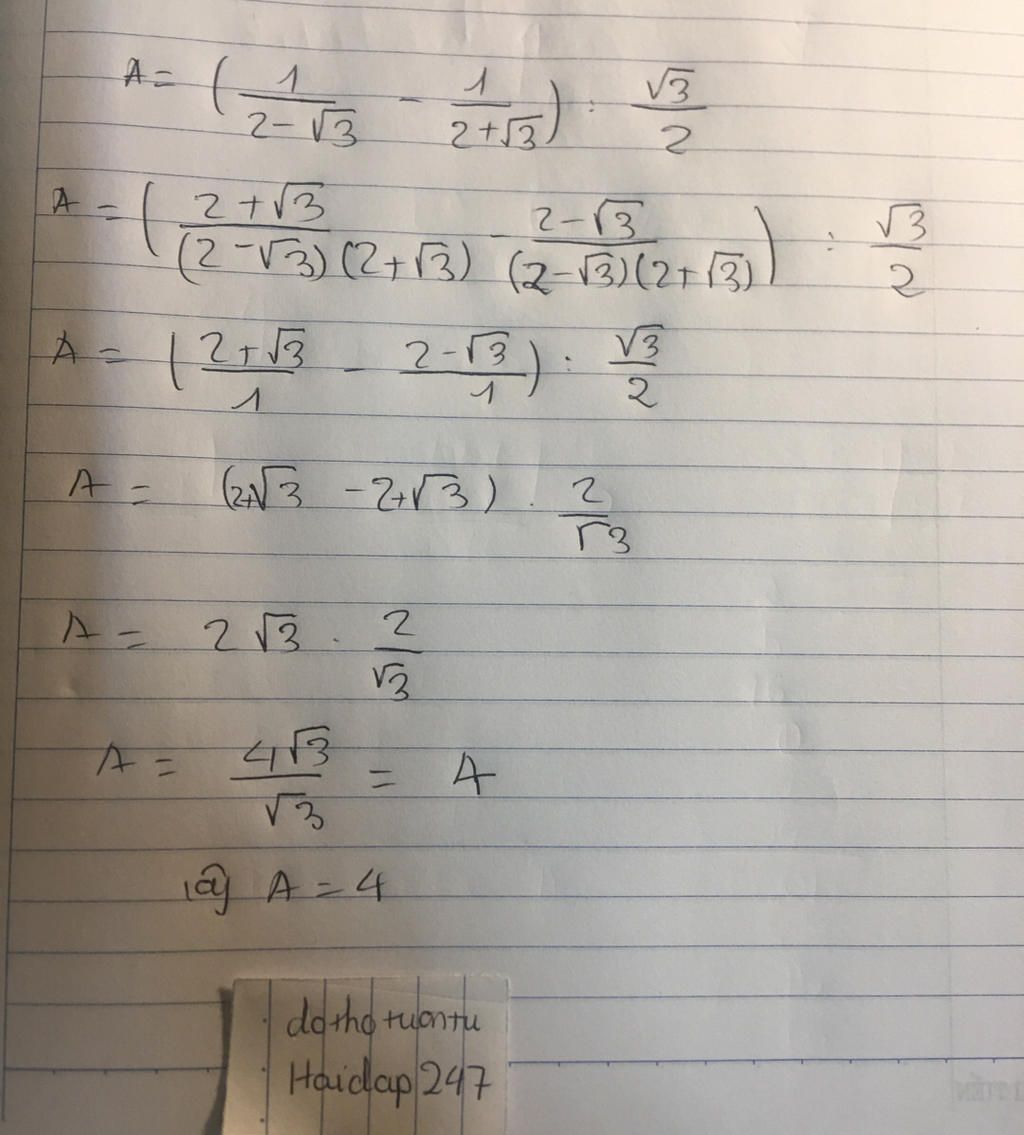 A = (1/(2-√3) - 1/(2+√3)) : √3/2
A = ((2+√3)/((2-√3)(2+√3)) - (2-√3)/((2-√3)(2+√3))) : √3/2
A = ((2+√3)/1 - (2-√3)/1) : √3/2
A = (2+√3 - 2+√3) . 2/√3
A = 2√3 . 2/√3
A = 4√3/√3 = 4
A = 4
dothotuontu
Hoidap247